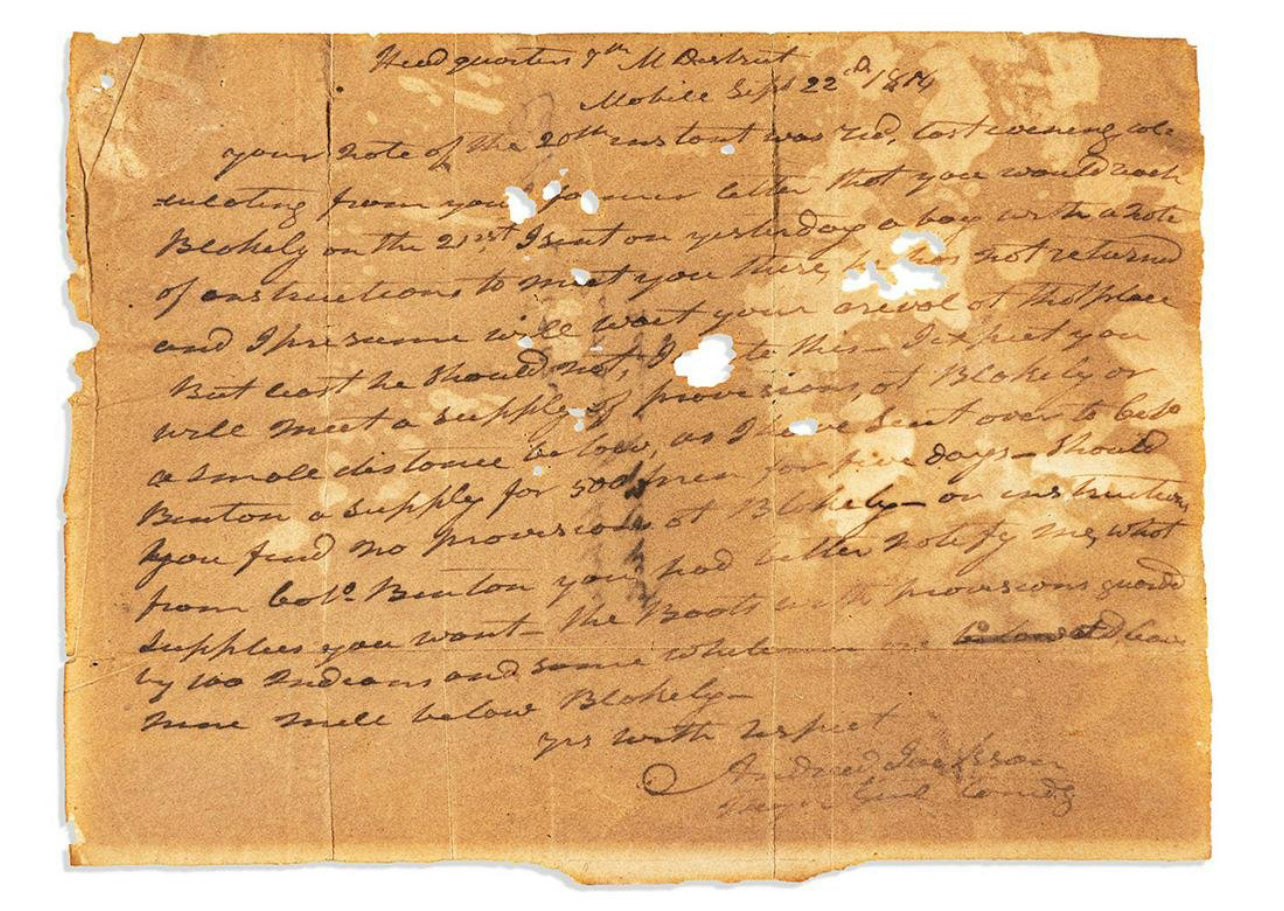 Head quarters 7th M District
Mobile Sept 22nd 1814
your note of the 20th instant was recd, last evening cal
culating from your former letter that you would reach
Blakely on the 21rst I sent on yesterday a boy with a note
of instructions to meet you there, he has not returned
and I presume will wait your arival at that place
But least he should not, I te this – I expect you
will meet a supply of provisions, at Blakely or
a small distance below, as I have sent over to Colo
Benton a supply for 500 men for five days – Should
you find no provisions at Blakely – or instructions
from Colo. Benton you had better notify me, what
supplies you want – the Boats with provisions guarded
by 100 Indians and some whitemen are
nine mile below Blakely –
yrs with respect
Andrew Jackson
Major Genl Comdg